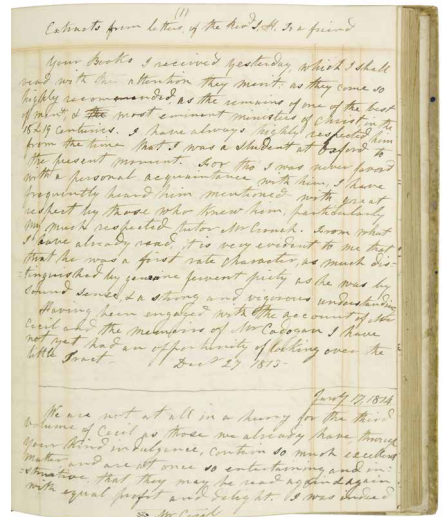 (1)
Extracts from letters, of the Revd S. H. To a friend
Your Books I received yesterday, which I shall
read with the attention they merit, as they come so
highly recommended, as the remains of one of the best
of men, & the most eminent ministers of Christ in the
18 & 19 Centuries. I have always highly respected him
from the time that I was a student at Oxford to
the present moment. For tho I was never favord
with a personal acquaintance with him, I have
frequently heard him mentioned with great
respect by those who knew him, particularly
my much respected tutor Mr Crouch. From what
I have already read, it is very evident to me that
that he was a first rate character, as much dis-
-tinguished by genuine fervent piety as he was by
sound sense, & a strong and vigorous understanding
Having been engaged with the account of Mr
Cecil and the memoirs of Mr Cadogan I have
not yet had an opportunity of looking over the
little Tract Decr 27. 1813-
Jany 17 1814
We are not at all in a hurry for the third
volume of Cecil as those we already have through
your kind indulgence, contain so much excellent
matter and are at once so entertaining and in-
-structive, that they may be read again & again
with equal profit and delight. I was indeed
Mr Cecil